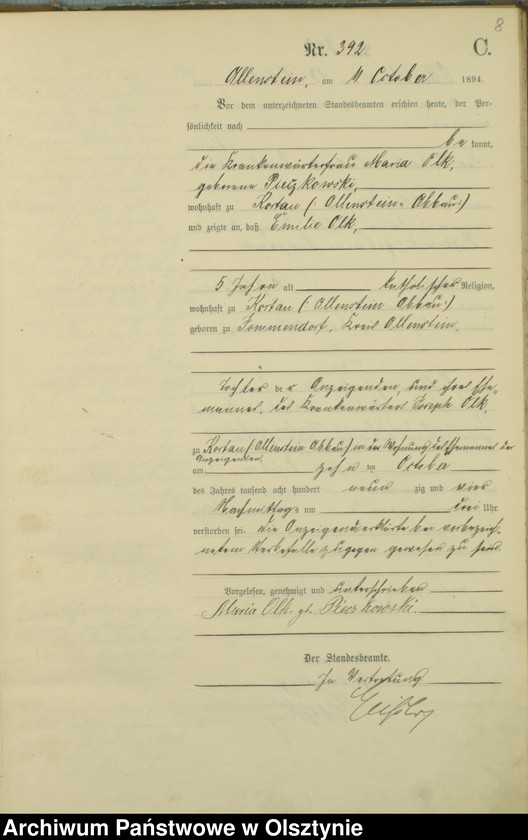 8
Nr. 392. C.
Allenstein, am 11 October 1894.
Vor dem unterzeichneten Standesbeamten erschien heute, der Per-
sönlichkeit nach
be kannt,
die Krankenwärterfrau Maria Olk,
geborene Pieczkowski,
wohnhaft zu Kortau (: Allenstein- Abbau:)
und zeigte an, daß Emilie Olk,
5 Jahre alt katholischer Religion,
wohnhaft zu Kortau (: Allenstein Abbau:)
geboren zu Jommendorf, Kreis Allenstein,
Tochter der Anzeigenden, und ihres Ehe-
mannes, des Krankenwärters Joseph Olk,
zu Kortau (: Allenstein Abbau:) in der Wohnung des Ehemannes der
Anzeigenden
am zehn ten October
des Jahres tausend acht hundert neun zig und vier
Nachmittags um drei Uhr
verstorben sei. Die Anzeigende erklärte bei vorbezeich-
netem Sterbefalle zugegen gewesen zu sein.
Vorgelesen, genehmigt und unterschrieben
Maria Olk. gb. Pieczkowski.
Der Standesbeamte.
In Vertretung
Archiwum Państwowe w Olsztynie